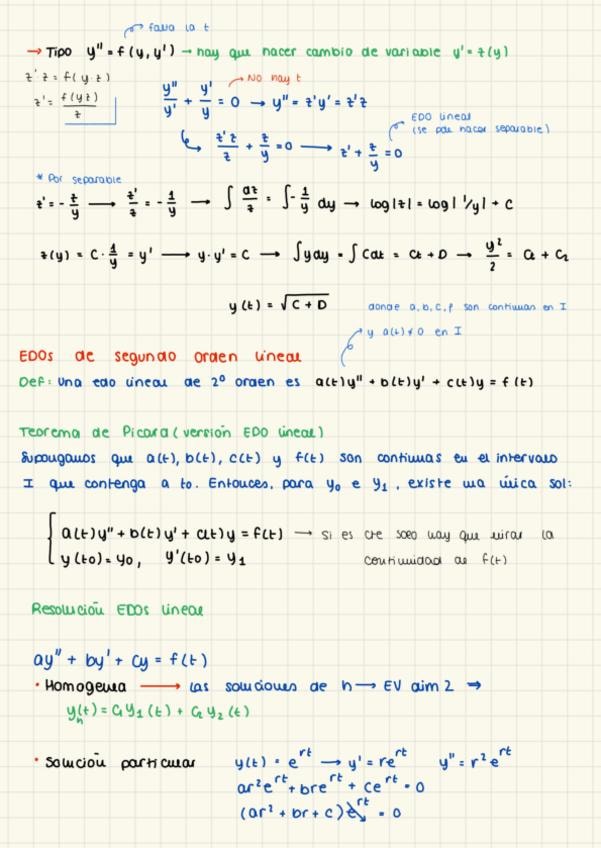 falta la t
→ Tipo y'' = f(y, y') → hay que hacer cambio de variable y' = z(y)
z' z = f(y·z)
z' = f(yz)/z
y''/y' + y'/y = 0 → y'' = z'y' = z'z
No hay t
z'z/z + z/y = 0 → z' + z/y = 0
EDO lineal
(se pde hacer separable)
* Por separable
z' = - z/y → z'/z = - 1/y → ∫ dz/z = ∫ - 1/y dy → log|z| = log|1/y| + C
z(y) = C · 1/y = y' → y·y' = C → ∫ y dy = ∫ C dt = Ct + D → y²/2 = Ct + C₂
y(t) = √C + D
donde a, b, c, f son continuas en I
y a(t) ≠ 0 en I
EDOs de segundo orden lineal
Def: Una edo lineal de 2º orden es a(t)y'' + b(t)y' + c(t)y = f(t)
Teorema de Picard (versión EDO lineal)
Supongamos que a(t), b(t), c(t) y f(t) son continuas en el intervalo
I que contenga a to. Entonces, para y₀ e y₁, existe una única sol:
a(t)y'' + b(t)y' + c(t)y = f(t) → si es cte solo hay que mirar la
y(to) = y₀, y'(to) = y₁ continuidad de f(t)
Resolución EDOs lineal
ay'' + by' + cy = f(t)
• Homogenea → las soluciones de h → EV dim 2 ⇒
yₕ(t) = C₁y₁(t) + C₂y₂(t)
• Solución particular y(t) = e^rt → y' = re^rt y'' = r²e^rt
ar²e^rt + bre^rt + ce^rt = 0
(ar² + br + c)e^rt = 0